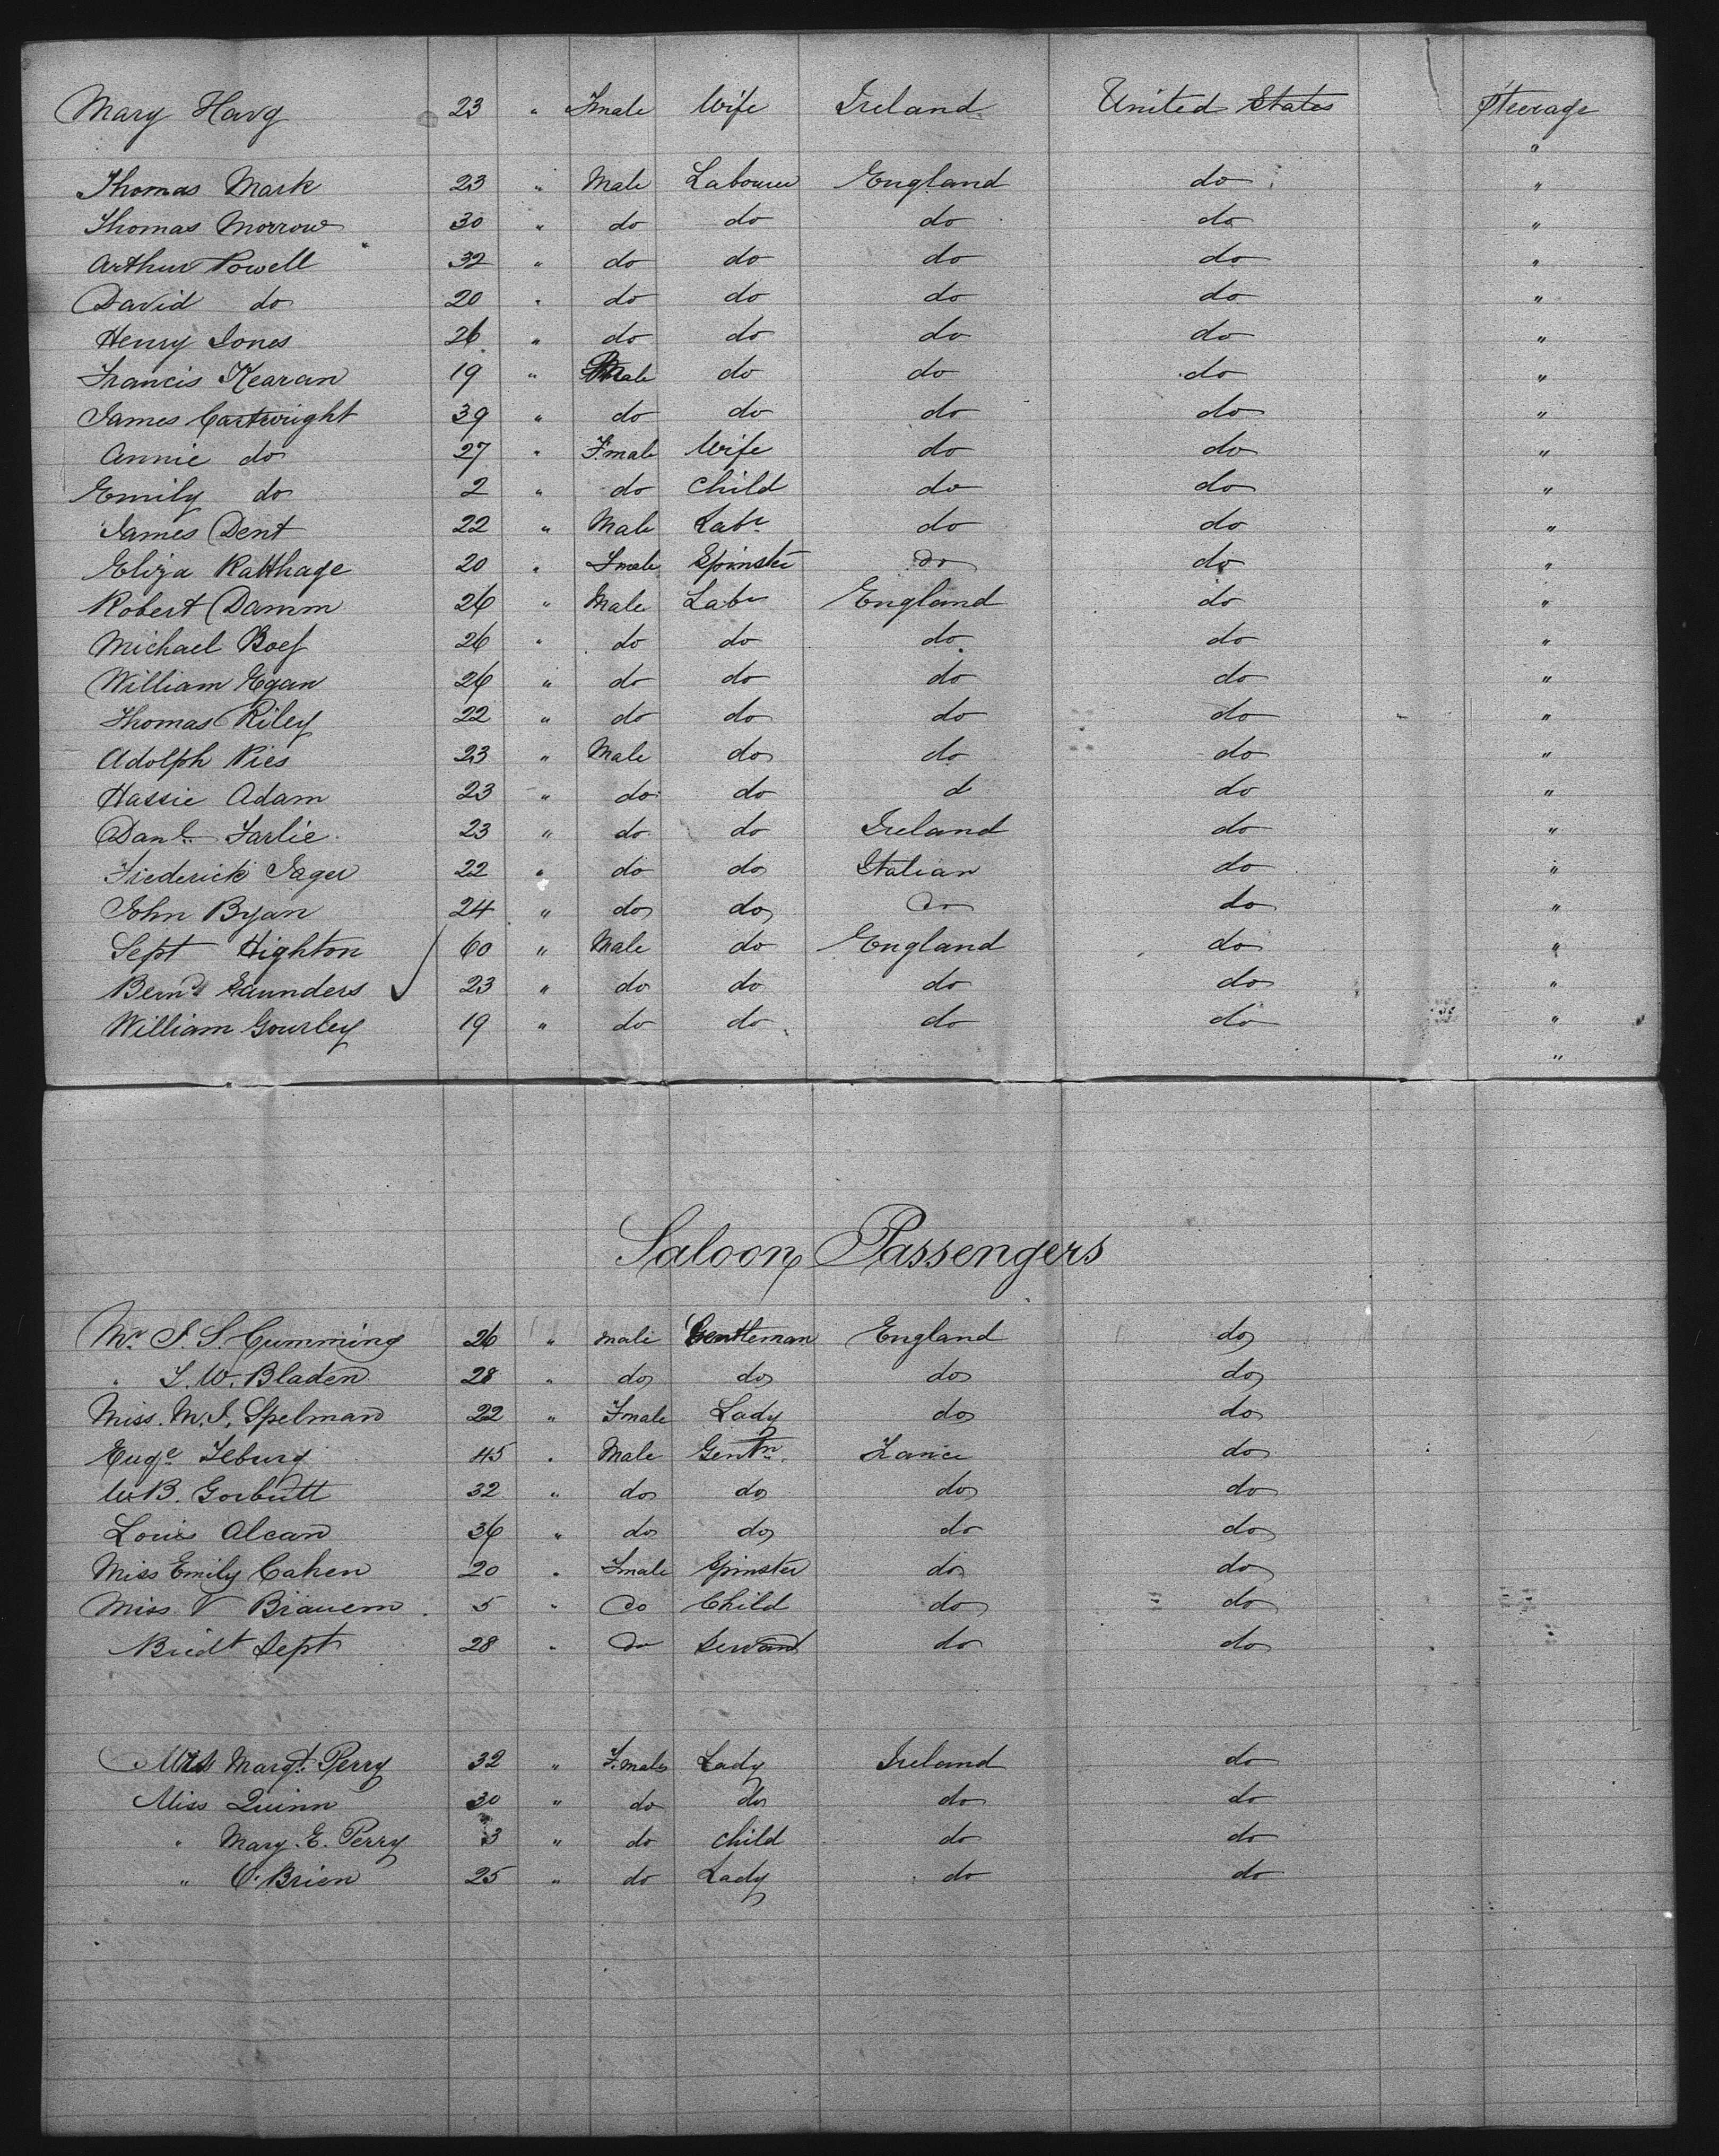 Mary Havg 23 " Fmale Wife Ireland United States Steerage
"
Thomas Mark 23 " Male Labourer England do "
Thomas Morrow 30 " do do do do "
Arthur Powell 32 " do do do do "
David do 20 " do do do do "
Henry Jones 26 " do do do do "
Francis Kearan 19 " Male do do do "
James Cartwright 39 " do do do do "
Annie do 27 " F.male Wife do do "
Emily do 2 " do Child do do "
James Dent 22 " Male Labr do do "
Eliza Ratthage 20 " Fmale Spinster do do "
Robert Damm 26 " Male Labr England do "
Michael Boes 26 " do do do do "
William Egan 26 " do do do do "
Thomas Riley 22 " do do do do "
Adolph Pies 23 " Male do do do "
Hassie Adam 23 " do do d do "
Danl. Farlie 23 " do do Ireland do "
Frederick Jager 22 " do do Italian do "
John Byan 24 " do do do do "
Sept Highton 60 " Male do England do "
Bernd Saunders 23 " do do do do "
William Gourley 19 " do do do do "
"
Saloon Passengers
Mr. J. S. Cumming 26 " Male Gentleman England do
" L. W. Bladen 28 " do do do do
Miss. M. J. Spelman 22 " Fmale Lady do do
Euge 45 " Male Gentn. France do
W B. Gorbutt 32 " do do do do
Louis Alcan 36 " do do do do
Miss Emily Cahen 20 " Fmale Spinster do do
Miss V 5 " do Child do do
Bridt Sept 28 " do Servant do do
Mrs Margt. Perry 32 " F.male Lady Ireland do
Miss Quinn 30 " do do do do
" Mary. E. Perry 3 " do child do do
" O'Brien 25 " do Lady do do